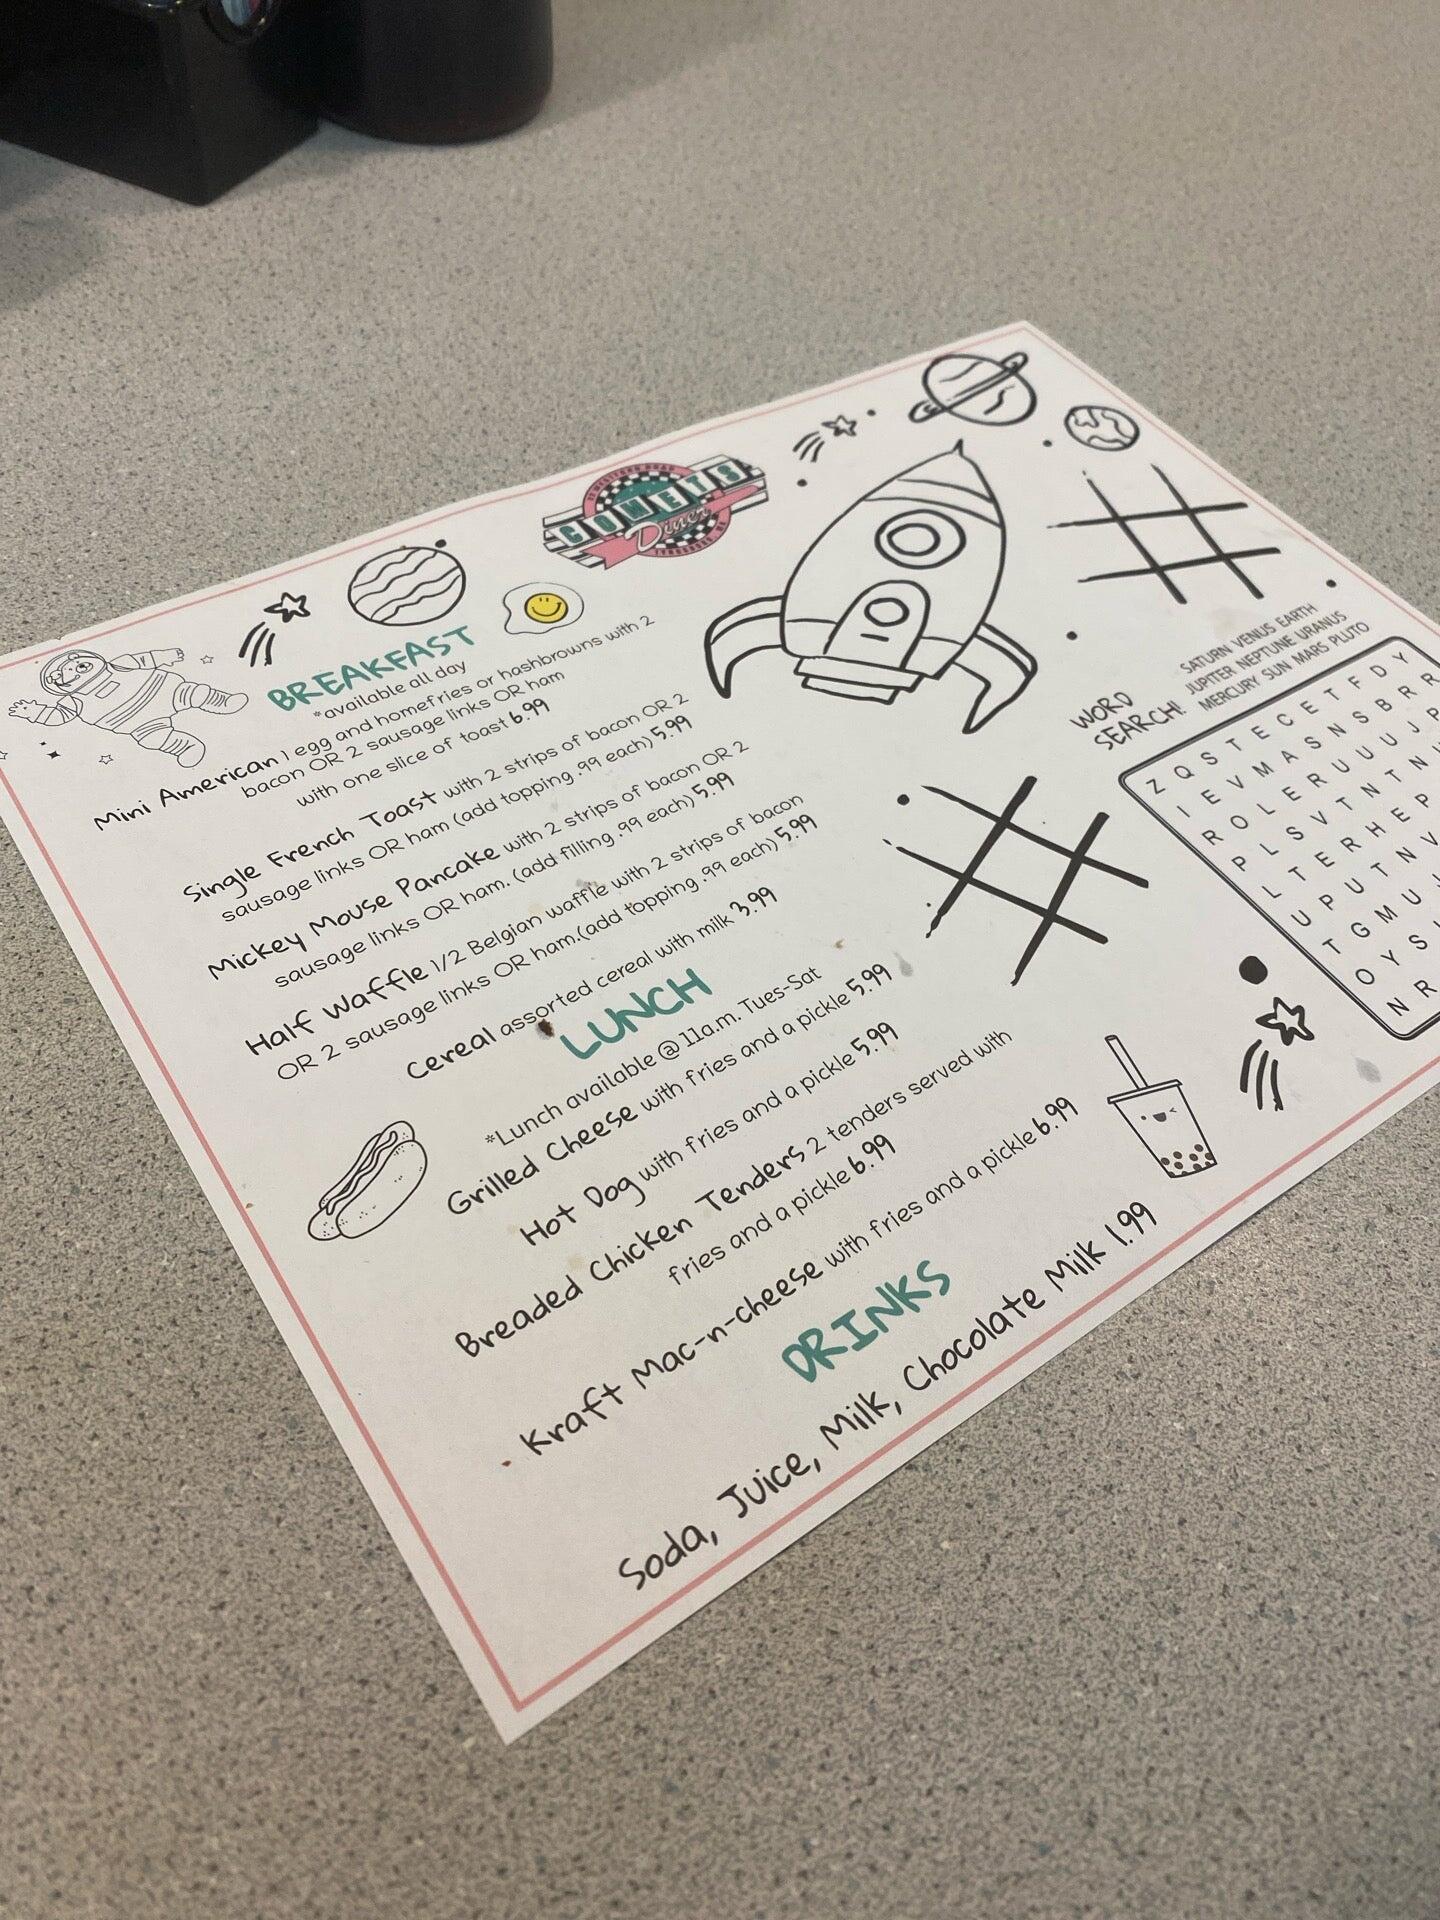 COMETS
Diner
BREAKFAST
*available all day
Mini American 1 egg and homefries or hashbrowns with 2
bacon OR 2 sausage links OR ham
with one slice of toast 6.99
Single French Toast with 2 strips of bacon OR 2
sausage links OR ham (add topping .99 each) 5.99
Mickey Mouse Pancake with 2 strips of bacon OR 2
sausage links OR ham. (add filling .99 each) 5.99
Half Waffle 1/2 Belgian waffle with 2 strips of bacon
OR 2 sausage links OR ham.(add topping .99 each) 5.99
Cereal assorted cereal with milk 3.99
LUNCH
*Lunch available @ 11a.m. Tues-Sat
Grilled Cheese with fries and a pickle 5.99
Hot Dog with fries and a pickle 5.99
Breaded Chicken Tenders 2 tenders served with
fries and a pickle 6.99
Kraft Mac-n-cheese with fries and a pickle 6.99
DRINKS
Soda, Juice, Milk, Chocolate Milk 1.99
WORD
SEARCH!
SATURN VENUS EARTH
JUPITER NEPTUNE URANUS
MERCURY SUN MARS PLUTO
Z Q S T E C E T F D Y
I E V M A S N S B R R
R O L E R U U J P
P L S V T N T N
L T E R H E P
U P U T N V
T G M U J
O Y S
N R